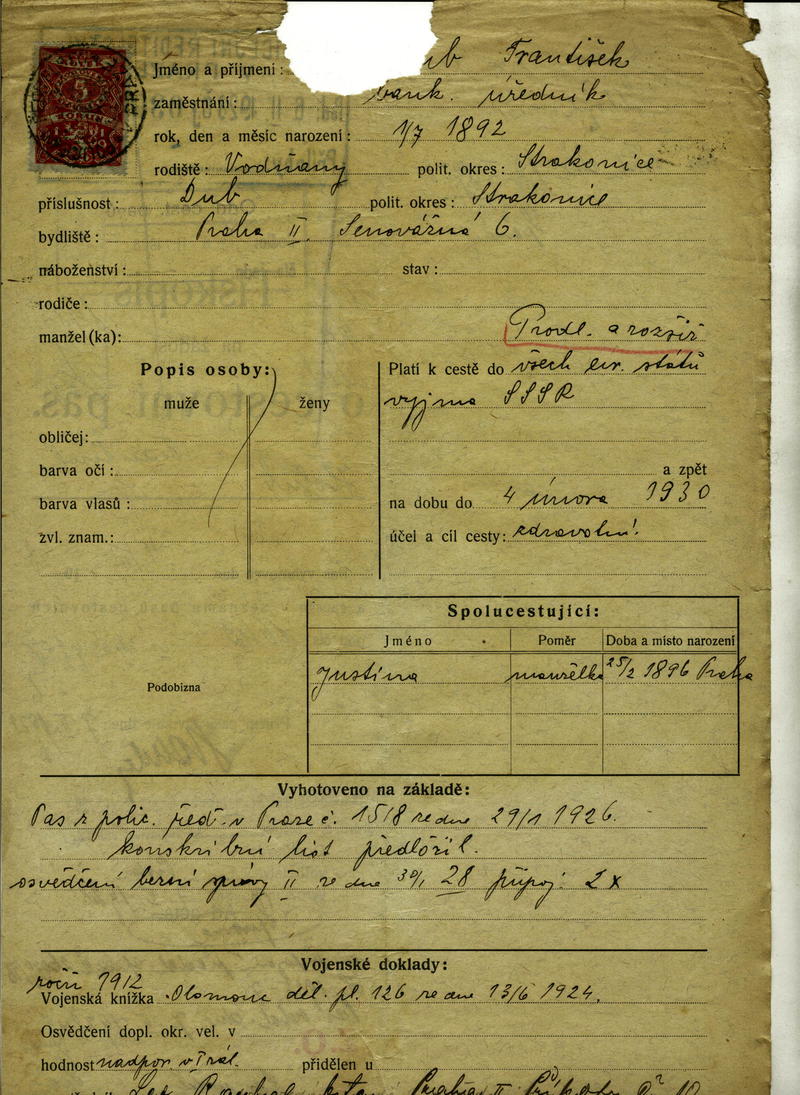 Jméno a příjmení : František
zaměstnání : bank. úředník
rok, den a měsíc narození : 1/7 1892
rodiště : Vodňany polit. okres : Strakonice
příslušnost : Dub polit. okres : Strakonice
bydliště : Praha II. Senovážná 6.
náboženství : stav :
rodiče :
manžel (ka) : Prodl. a rozšiř
Popis osoby:
muže ženy
obličej :
barva očí :
barva vlasů :
zvl. znam. :
Platí k cestě do všech eur. států
vyjma SSSR
a zpět
na dobu do 4 února 1930
účel a cíl cesty : zdravotní
Spolucestující:
Jméno Poměr Doba a místo narození
Justina manželka 25/2 1896 Praha
Podobizna
Vyhotoveno na základě:
Pas z polic. řed. v Praze č. 1518 ze dne 29/1 1926.
konskribní list předložil.
osvědčení berní správy II ze dne 30/1 28 připoj. 2 x
Vojenské doklady:
roční 1912
Vojenská knížka Olomouc děl. pl. 126 ze dne 13/6 1924.
Osvědčení dopl. okr. vel. v
hodnost nadpor. v
přidělen u
Praha II